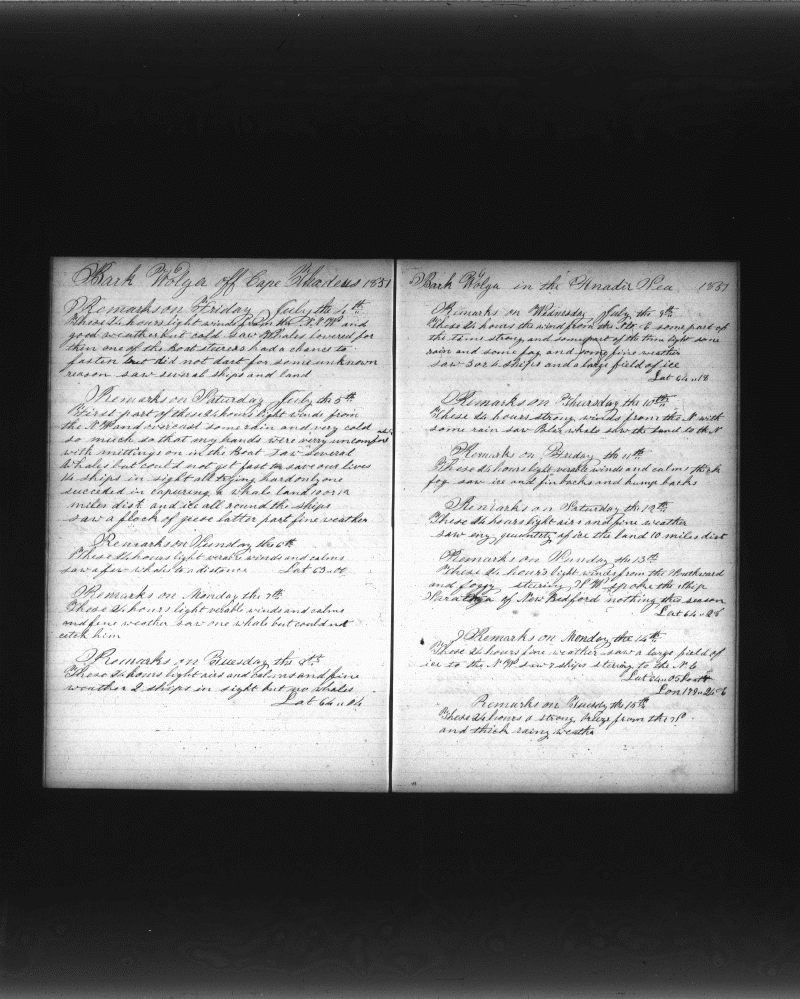 Bark Wolga off Cape Thadeus 1851
Remarks on Friday July the 4th
These 24 hours light winds from the N.N.W and
good weather but cold saw Whales lowered for
them one of the Boatsteerers had a chance to
fasten but did not dart for some unknown
reason saw several ships and land
Remarks on Saturday July the 5th
First part of these 24 hours light winds from
the N.W and overcast some rain and very cold
so much so that my hands were very uncomfort
with mittings on in the Boat saw several
Whales but could not get fast to save our lives
14 ships in sight all trying hard only one
succeded in capturing a whale land 10 or 12
miles dist and ice all round the ships
saw a flock of geese latter part fine weather
Remarks on Sunday the 6th
These 24 hours light verable winds and calms
saw a few whales in distance Lat 63
Remarks on Monday the 7th
These 24 hours light verable winds and calms
and fine weather saw one whale but could not
catch him
Remarks on Tuesday the 8th
These 24 hours light airs and calms and fine
weather 2 ships in sight but no whales
Lat 64 " 04
Bark Wolga in the Anadir Sea 1851
Remarks on Wednesday July the 9th
These 24 hours the wind from the E some part of
the time strong and some part of the time light some
rain and some fog and some fine weather
saw 3 or 4 ships and a large field of ice
Lat 64 " 18
Remarks on Thursday the 10th
These 24 hours strong winds from the N with
some rain saw whale saw the land to the N
Remarks on Friday the 11th
These 24 hours light verable winds and calms thick
fog saw ice and finbacks and hump backs
Remarks on Saturday the 12th
These 24 hours light airs and fine weather
saw any quantity of ice the land 10 miles dist
Remarks on Sunday the 13th
These 24 hours light winds from the Southward
and foggy stering S.W spoke the ship
Saratoga of New Bedford nothing this season
Lat 64 " 28
Remarks on Monday the 14th
These 24 hours fine weather saw a large field of
ice to the N.W saw 7 ships stering to the N.E
Lat 64 " 05 North
Lon 179 " 26 E
Remarks on Tuesday the 15th
These 24 hours a strong breeze from the
and thick rainy weather